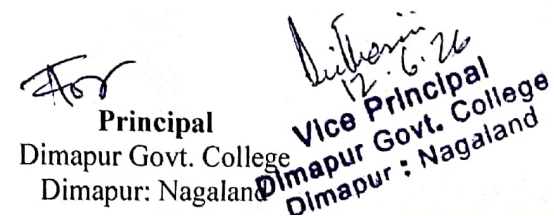 For
Principal
Dimapur Govt. College
Dimapur: Nagaland
12.6.26
Vice Principal
Dimapur Govt. College
Dimapur : Nagaland